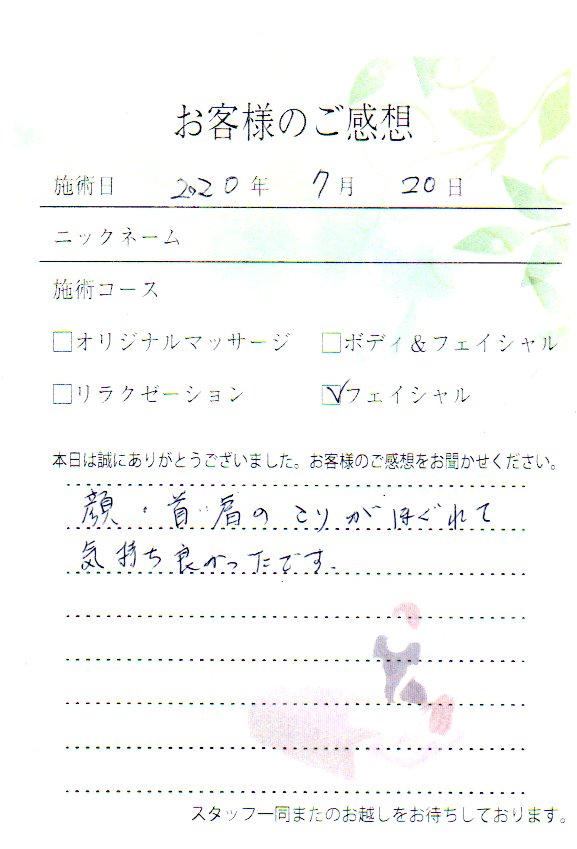 お客様のご感想
施術日 2020年 7月 20日
ニックネーム
施術コース
□オリジナルマッサージ □ボディ&フェイシャル
□リラクゼーション ☑フェイシャル
本日は誠にありがとうございました。お客様のご感想をお聞かせください。
顔・首・肩のこりがほぐれて
気持ち良かったです。
スタッフ一同またのお越しをお待ちしております。